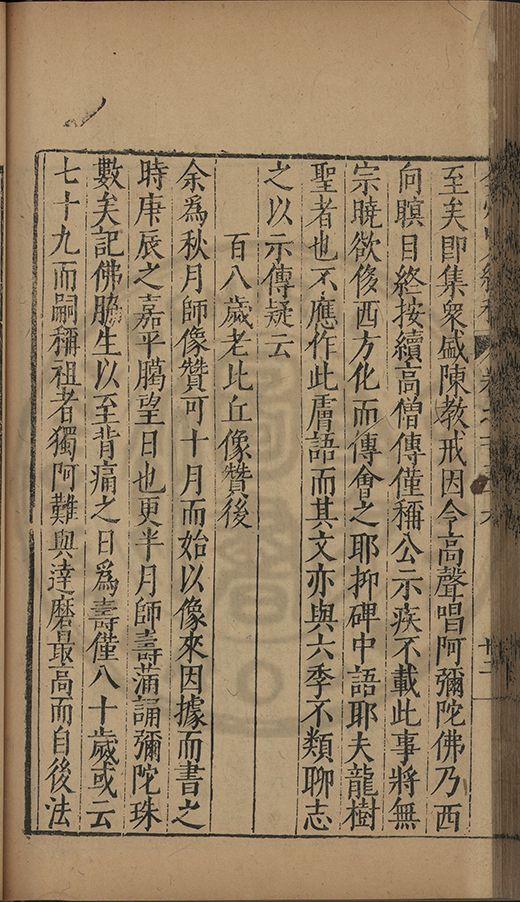 至矣即集衆盛陳教戒因令高聲唱阿彌陀佛乃西
向瞑目終按續高僧傳僅稱公示疾不載此事將無
宗曉欲俢西方化而傳會之耶抑碑中語耶夫龍樹
聖者也不應作此膚語而其文亦與六季不類聊志
之以示傳疑云
百八歲老比丘像贊後
余為秋月師像贊可十月而始以像來因據而書之
時庚辰之嘉平臈望日也更半月師壽蒲誦彌陀珠
數矣記佛脇生以至背痛之日為壽僅八十歲或云
七十九而嗣稱祖者獨阿難與達磨最高而自後法